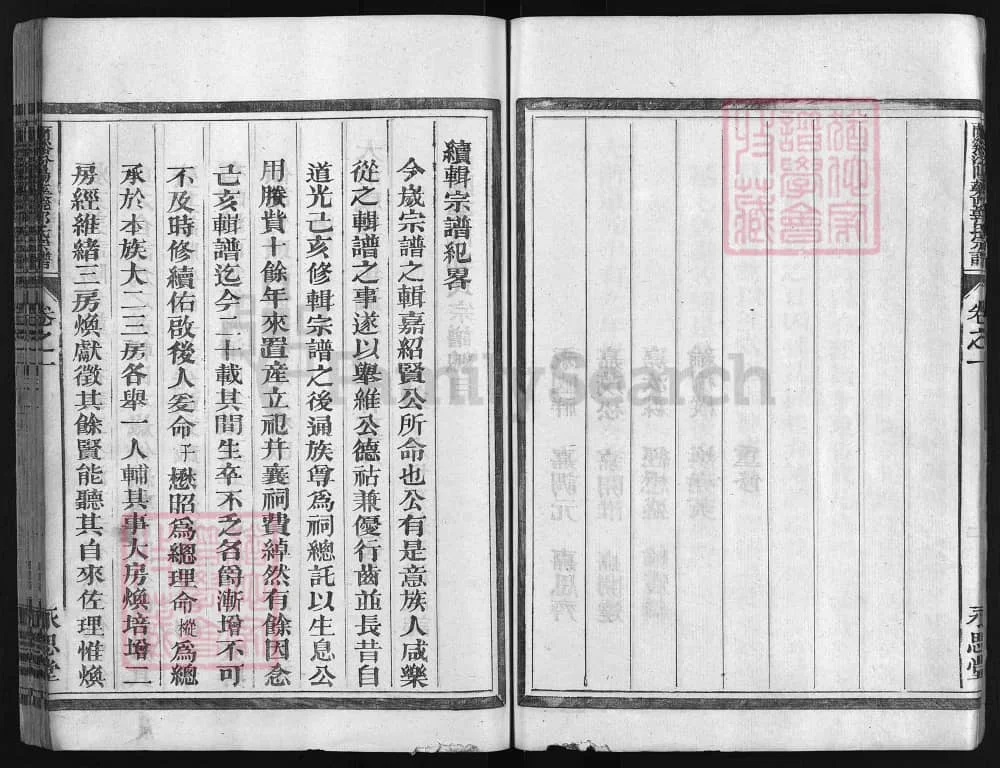 卷之一
永思堂
續輯宗譜紀畧
今歲宗譜之輯嘉紹賢公所命也公有是意族人咸樂
從之輯譜之事遂以舉維公德祜兼優行齒並長昔自
道光己亥修輯宗譜之後通族尊為祠總託以生息公
用賸貲十餘年來置產立祀幷襄祠費綽然有餘因念
己亥輯譜迄今二十載其間生卒不乏名爵漸增不可
不及時修續佑啟後人爰命子懋昭為總理命樅為總
承於本族大二三房各舉一人輔其事大房煥培增二
房經維緒三房煥獻徵其餘賢能聽其自來佐理惟煥
卷之一
永思堂
FamilySearch